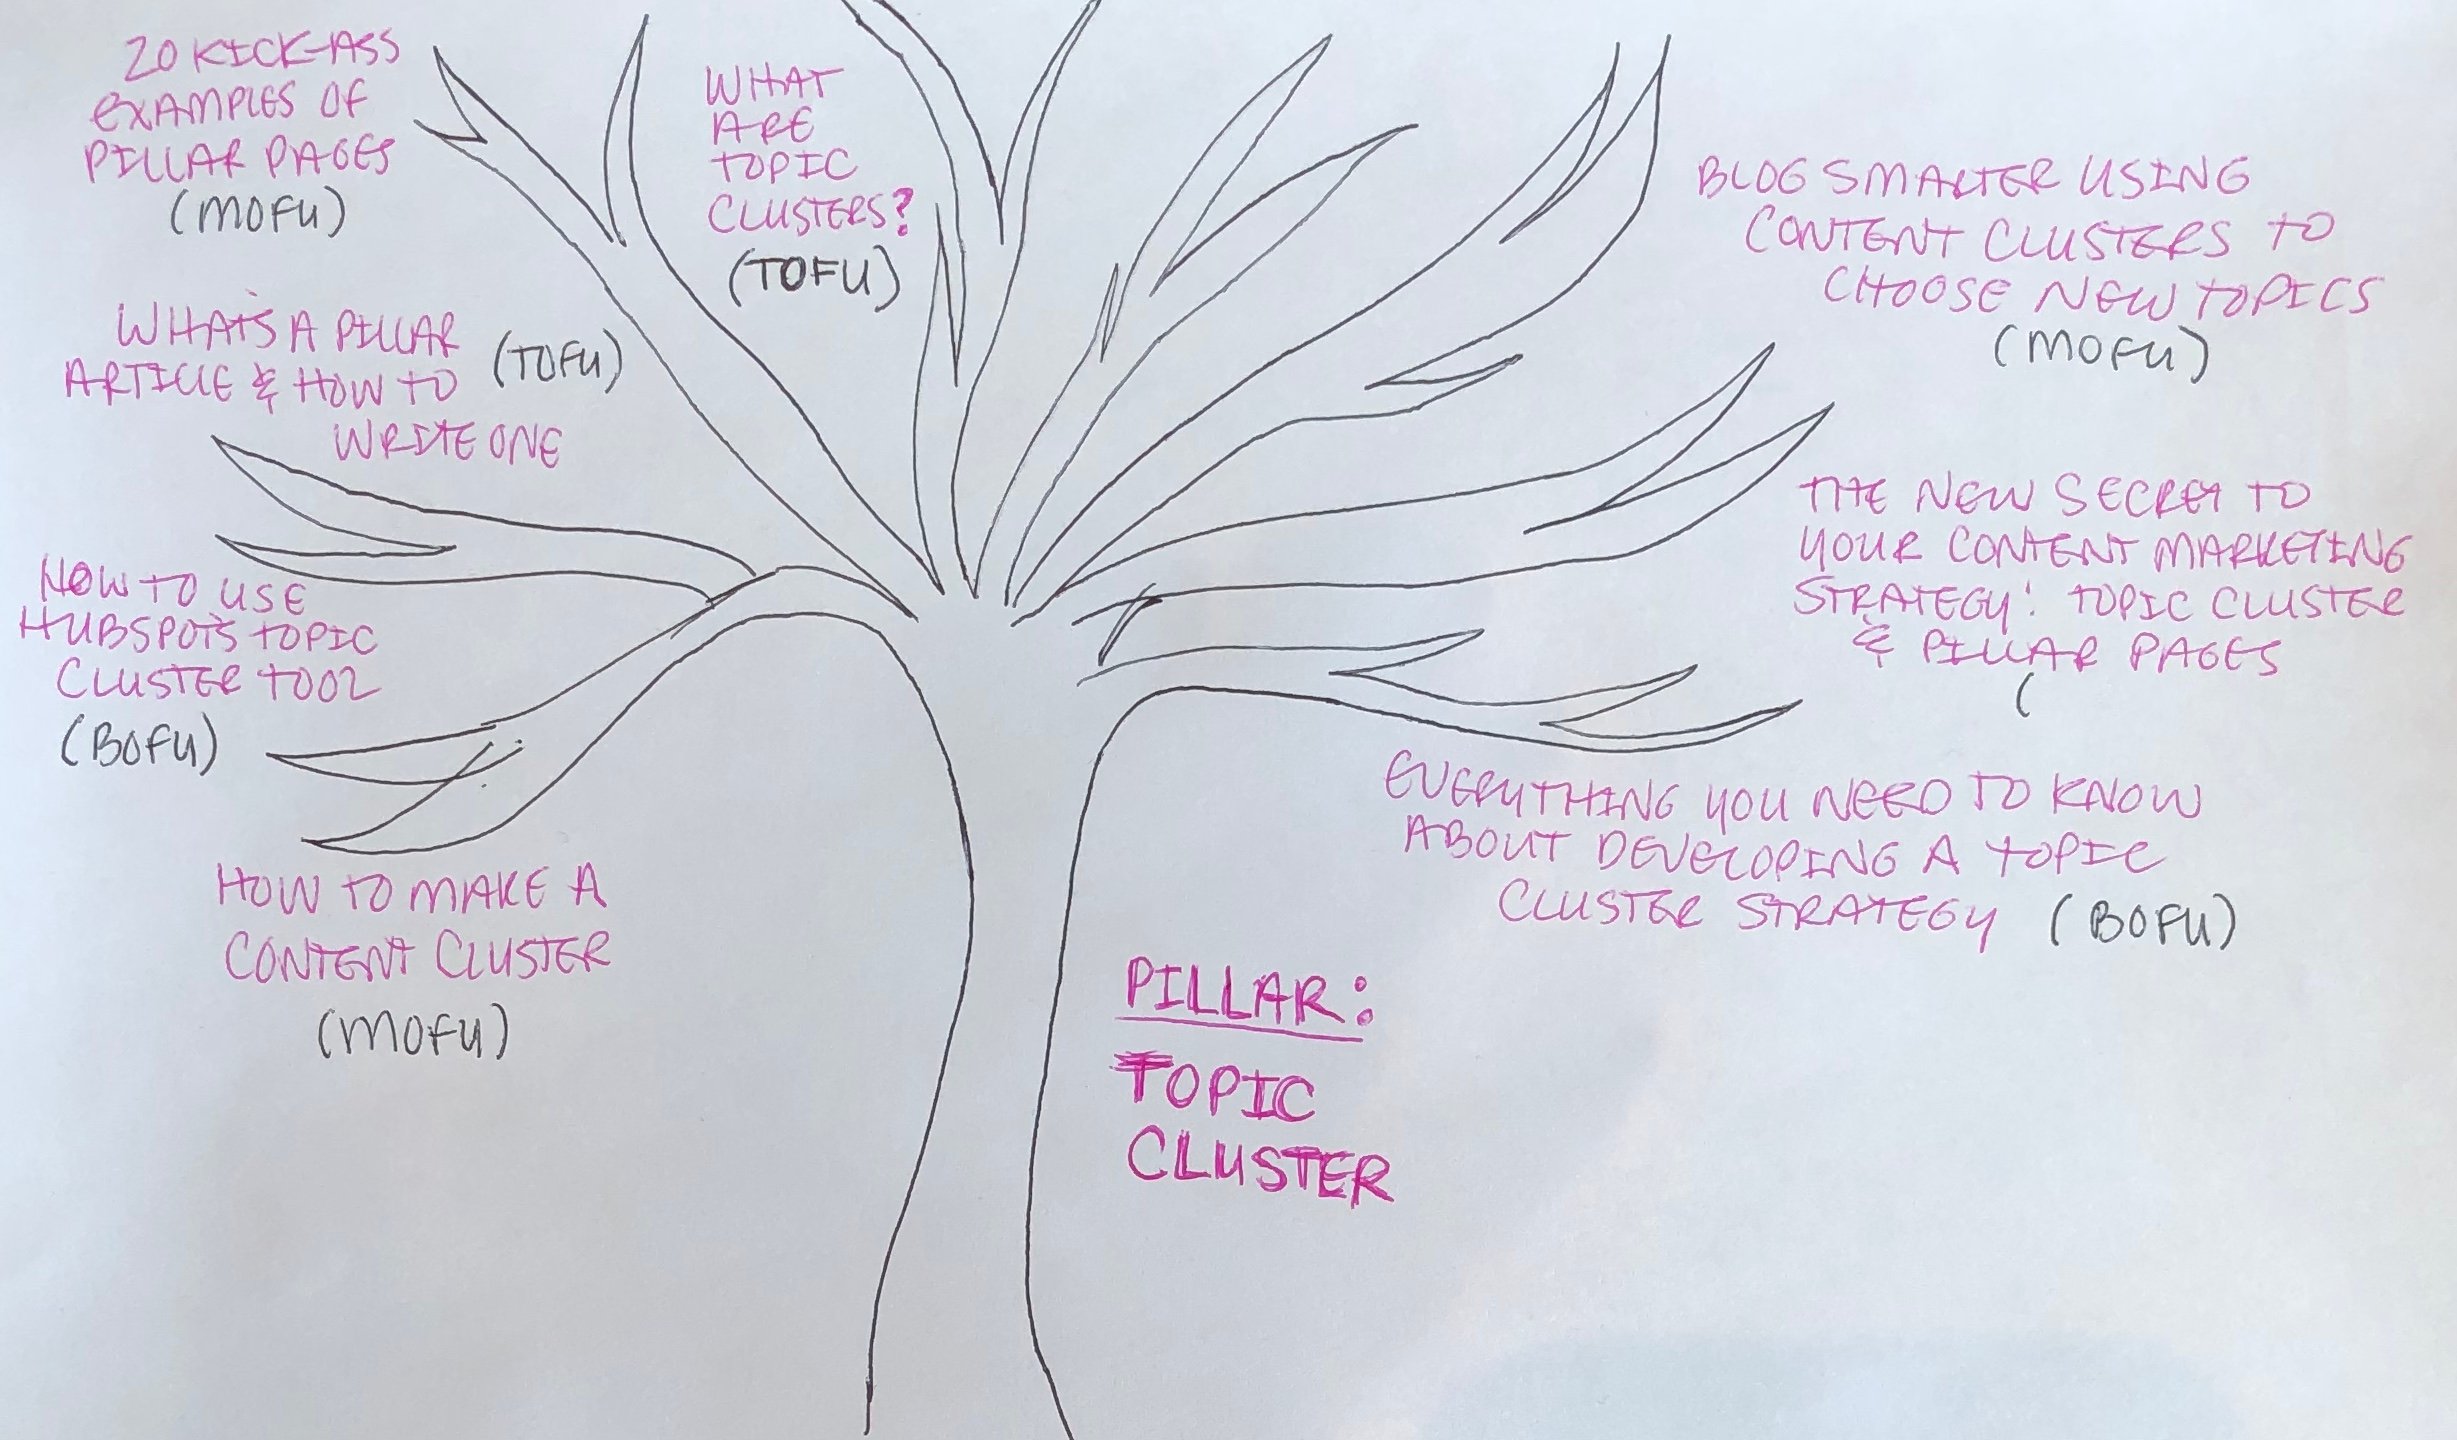 20 KICK-ASS
EXAMPLES OF
PILLAR PAGES
(MOFU)
WHAT
ARE
TOPIC
CLUSTERS?
(TOFU)
WHAT'S A PILLAR
ARTICLE & HOW TO
WRITE ONE
(TOFU)
HOW TO USE
HUBSPOT'S TOPIC
CLUSTER TOOL
(BOFU)
HOW TO MAKE A
CONTENT CLUSTER
(MOFU)
BLOG SMARTER USING
CONTENT CLUSTERS TO
CHOOSE NEW TOPICS
(MOFU)
THE NEW SECRET TO
YOUR CONTENT MARKETING
STRATEGY: TOPIC CLUSTER
& PILLAR PAGES
(
EVERYTHING YOU NEED TO KNOW
ABOUT DEVELOPING A TOPIC
CLUSTER STRATEGY (BOFU)
PILLAR:
TOPIC
CLUSTER